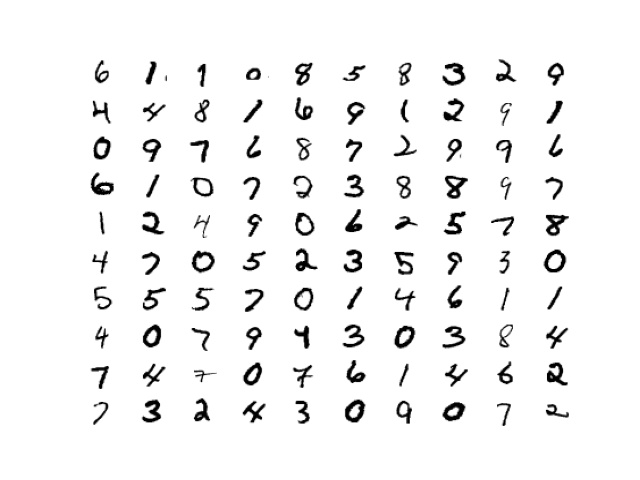 6 1 1 0 8 5 8 3 2 9
4 4 8 1 6 9 1 2 9 1
0 9 7 6 8 7 2 9 9 6
6 1 0 7 2 3 8 8 9 7
1 2 4 9 0 6 2 5 7 8
4 7 0 5 2 3 5 9 3 0
5 5 5 7 0 1 4 6 1 1
4 0 7 9 4 3 0 3 8 4
7 4 7 0 7 6 1 4 6 2
7 3 2 4 3 0 9 0 7 2